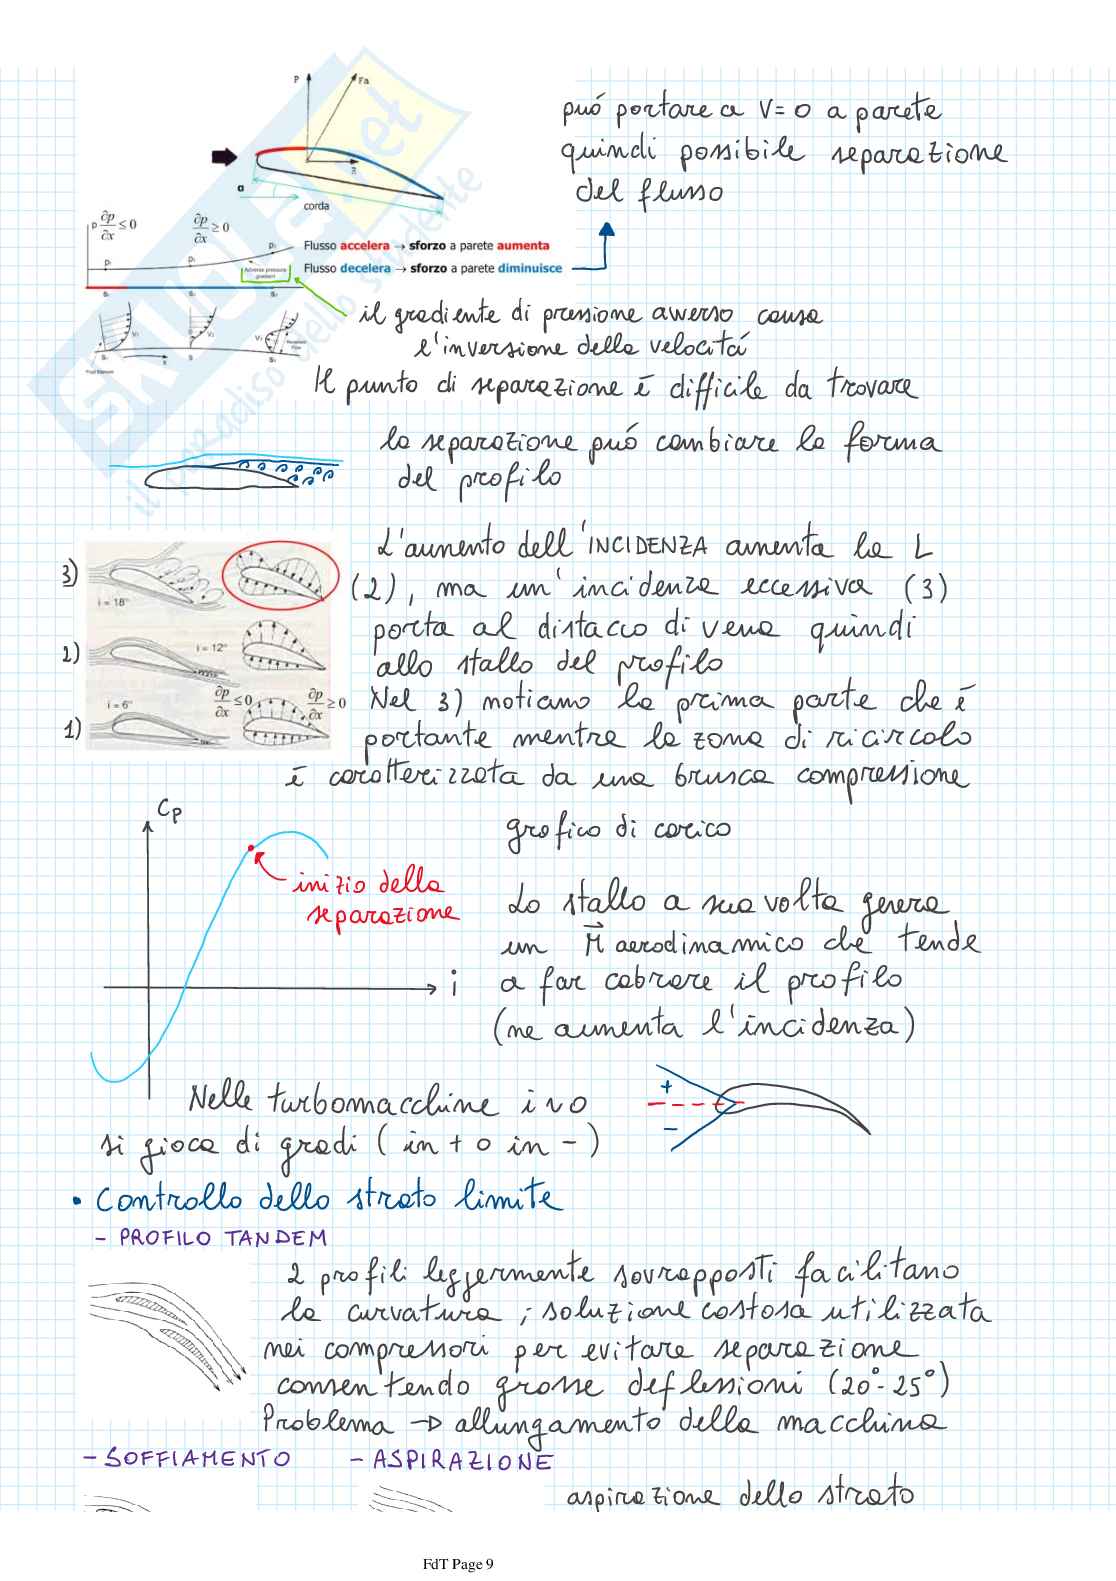 P
Fa
R
α
corda
p ∂p/∂x ≤ 0
∂p/∂x ≥ 0
Flusso accelera → sforzo a parete aumenta
Flusso decelera → sforzo a parete diminuisce
Adverse pressure gradient
può portare a V=0 a parete
quindi possibile separazione
del flusso
il gradiente di pressione avverso causa
l'inversione della velocitá
Il punto di separazione é difficile da trovare
la separazione puó cambiare la forma
del profilo
3)
i = 18°
2)
i = 12°
1)
i = 6°
∂p/∂x ≤ 0
∂p/∂x ≥ 0
L'aumento dell'INCIDENZA aumenta la L
(2), ma un'incidenza eccessiva (3)
porta al distacco di vena quindi
allo stallo del profilo
Nel 3) notiamo la prima parte che é
portante mentre la zona di ricircolo
é caratterizzata da una brusca compressione
Cp
grafico di carico
inizio della
separazione
i
Lo stallo a sua volta genera
un M aerodinamico che tende
a far cabrare il profilo
(ne aumenta l'incidenza)
Nelle turbomacchine i ~ 0
si gioca di gradi (in + o in -)
+
-
• Controllo dello strato limite
- PROFILO TANDEM
2 profili leggermente sovrapposti facilitano
la curvatura ; soluzione costosa utilizzata
nei compressori per evitare separazione
consentendo grosse deflessioni (20°-25°)
Problema → allungamento della macchina
- SOFFIAMENTO
- ASPIRAZIONE
aspirazione dello strato
FdT Page 9
SKUOLA.net
il paradiso dello studente